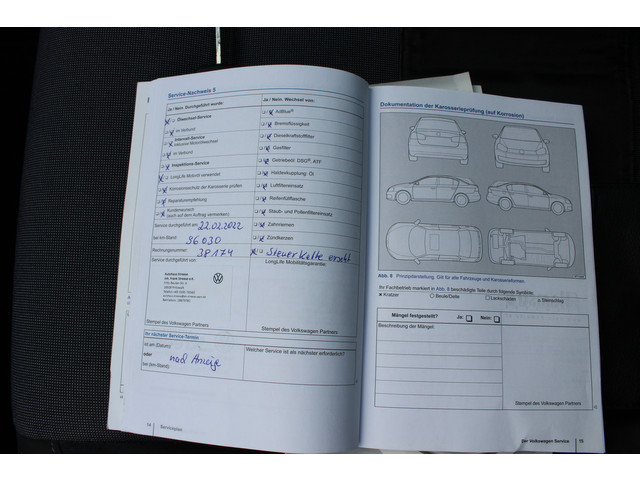 Service-Nachweis 5
Ja / Nein. Durchgeführt wurde:
Ölwechsel-Service
im Verbund
Intervall-Service
inklusive Motorölwechsel
im Verbund
Inspektions-Service
LongLife Motoröl verwendet
Korrosionsschutz der Karosserie prüfen
Reparaturempfehlung
Kundenwunsch
(auch auf dem Auftrag vermerken)
Service durchgeführt am: 22.02.2022
bei km-Stand: 96030
Rechnungsnummer: 38174
Service durchgeführt von:
Stempel des Volkswagen Partners
Ja / Nein. Wechsel von:
AdBlue®
Bremsflüssigkeit
Dieselkraftstofffilter
Gasfilter
Getriebeöl: DSG®, ATF
Haldexkupplung: Öl
Luftfiltereinsatz
Reifenfüllflasche
Staub- und Pollenfiltereinsatz
Zahnriemen
Zündkerzen
LongLife Mobilitätsgarantie:
Stempel des Volkswagen Partners
Ihr nächster Service-Termin:
ist am (Datum):
oder
bei (km-Stand):
nach Anzeige
Welcher Service ist als nächster erforderlich?
14 Serviceplan
Dokumentation der Karosserieprüfung (auf Korrosion)
Abb. 5 Prinzipdarstellung. Gilt für alle Fahrzeuge und Karosserieformen.
Ihr Fachbetrieb markiert in Abb. 5 beschädigte Teile durch folgende Symbole:
Kratzer Beule/Delle Lackschaden Steinschlag
Mängel festgestellt? Ja: Nein:
Beschreibung der Mängel:
Stempel des Volkswagen Partners
Der Volkswagen Service 15